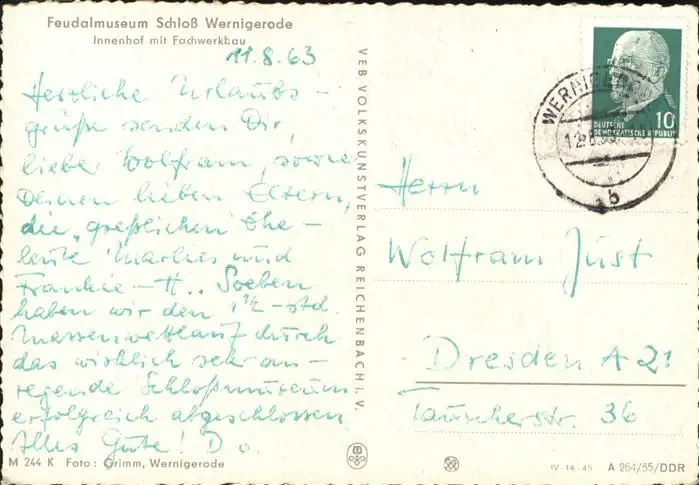 Feudalmuseum Schloß Wernigerode
Innenhof mit Fachwerkbau
11.8.63
Herzliche Urlaubs-
grüße senden Dir,
lieber Wolfram, sowie
Deinen lieben Eltern,
die „greßlichen Ehe-
leute Marlies und
Frankie-H.. Soeben
haben wir den 1½-std.
Massenwettlauf durch
das wirklich sehr an-
regende Schloßmuseum
erfolgreich abgeschlossen
Alles Gute! D o.
M 244 K Foto: Grimm, Wernigerode
VEB VOLKSKUNSTVERLAG REICHENBACH i. V.
DEUTSCHE
DEMOKRATISCHE REPUBLIK
10
WERNIGERODE
12.8.63
b
Herrn
Wolfram Just
Dresden A 21
Tauscherstr. 36
IV-14-45 A 264/55/DDR